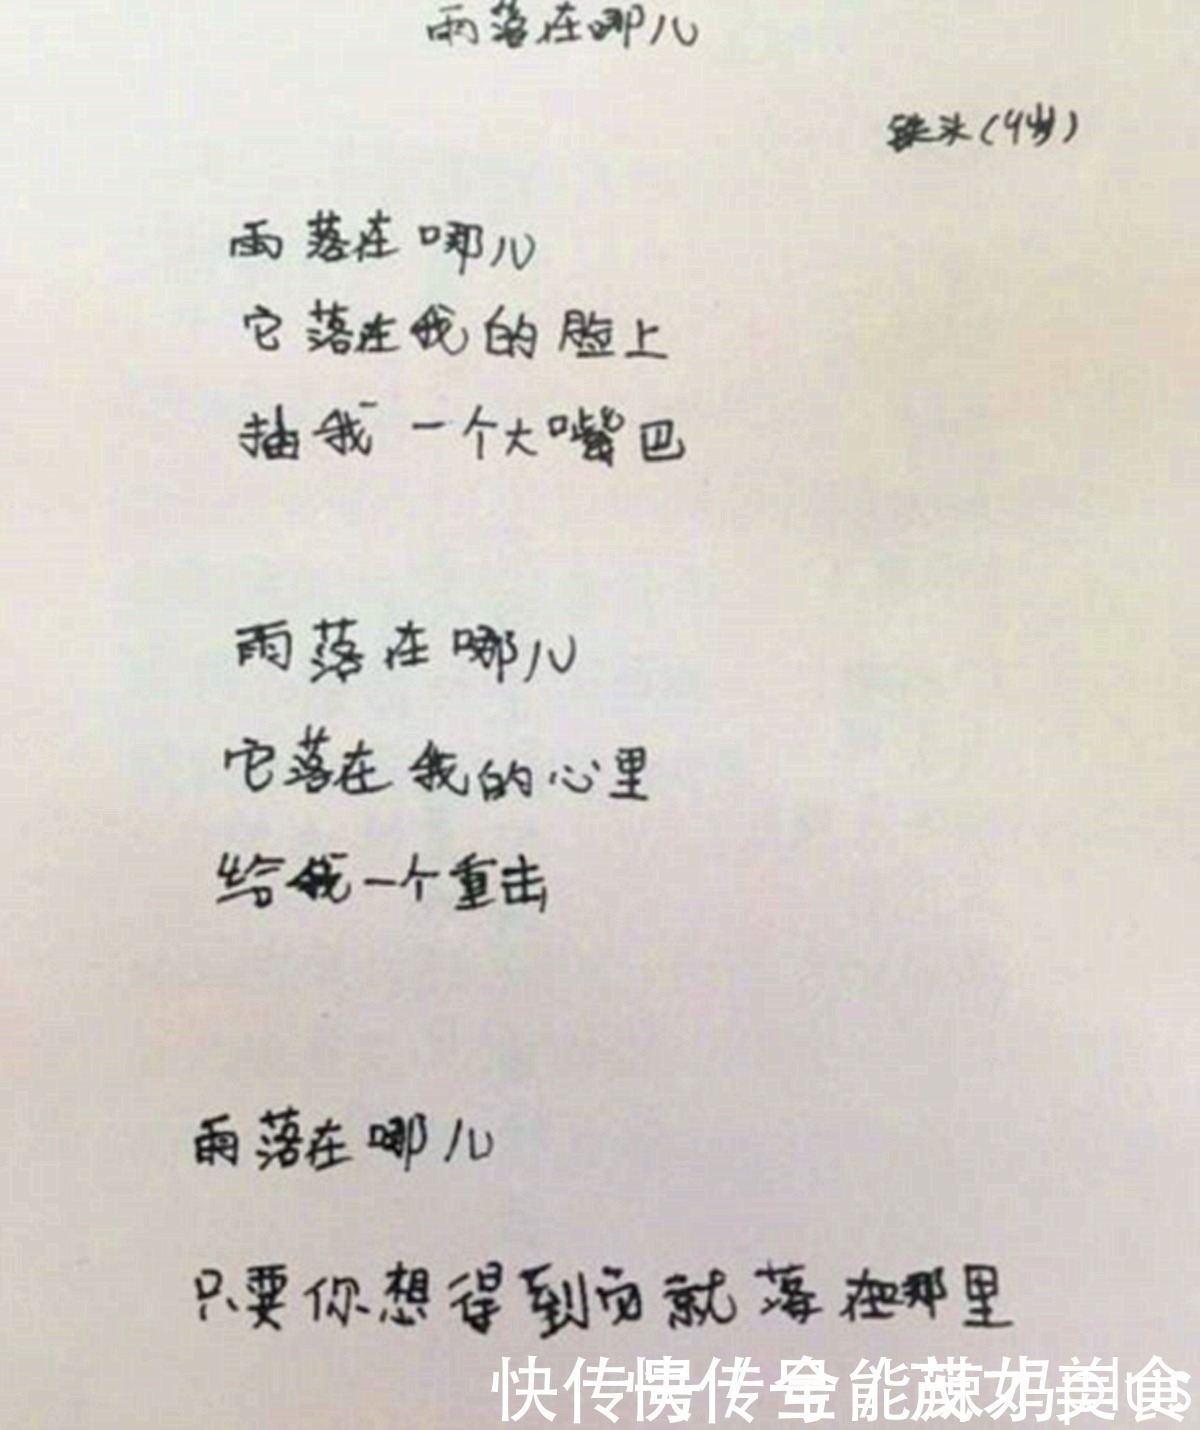 雨落在哪儿
铁头（4岁）
雨落在哪儿
它落在我的脸上
抽我一个大嘴巴
雨落在哪儿
它落在我的心里
给我一个重击
雨落在哪儿
只要你想得到雨就落在哪里
快传号/